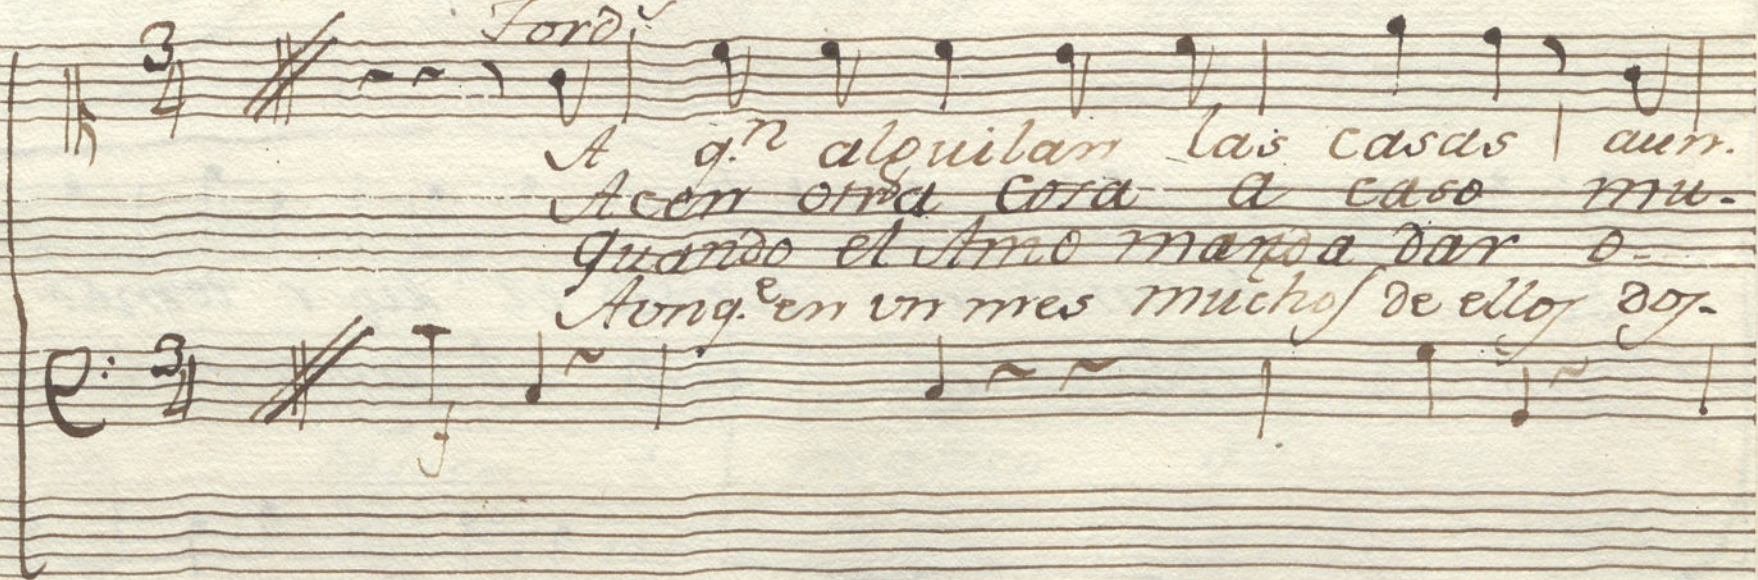 Jord.ª
A q.n alguilan las casas | aun.
Acen otra cosa a caso mu-
quando el Amo manda dar o-
Aunq.e en un mes muchos de ellos dos-
f